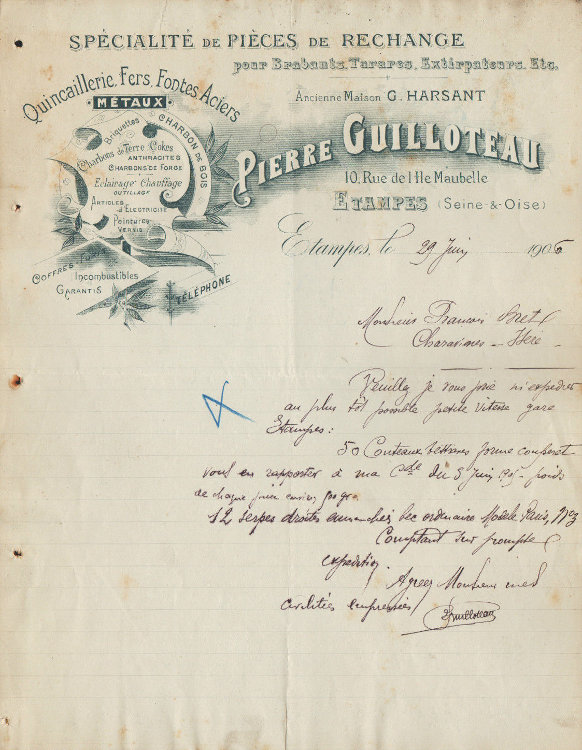 SPÉCIALITÉ DE PIÈCES DE RECHANGE
pour Brabants, Tarares, Extirpateurs, Etc.
Quincaillerie, Fers, Fontes, Aciers
MÉTAUX
Briquettes
CHARBON DE BOIS
Charbons de Terre Cokes
ANTHRACITES
CHARBONS DE FORGE
Eclairage Chauffage
OUTILLAGE
ARTICLES
d'ELECTRICITÉ
Peintures
VERNIS
COFFRES-FORTS
Incombustibles
GARANTIS
TÉLÉPHONE
Ancienne Maison G. HARSANT
PIERRE GUILLOTEAU
10, Rue de l'Ile Maubelle
ETAMPES (Seine-&-Oise)
Etampes, le 29 Juin 1905
Monsieur Francois
Charavines - Isere
Veuillez je vous prie m'expedier
au plus tôt possible petite vitesse gare
Etampes:
50 Couteaux betteraves forme
vous en rapporter à ma Cde du 5 Juin 1905 poids
de chaque
12 serpes droites emmanchées bec ordinaire Modèle Paris, No 3
Comptant sur prompte
expedition
Agreez Monsieur mes
civilités empressées
PGuilloteau